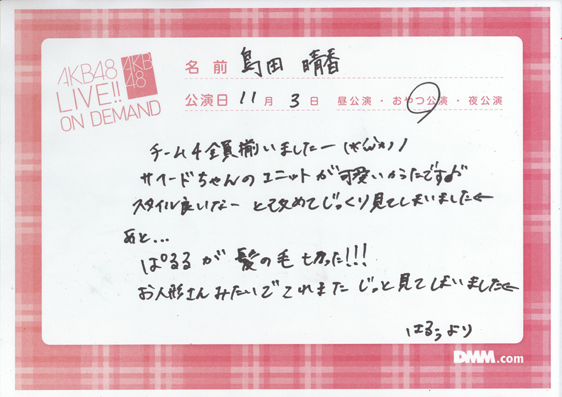 AKB48
LIVE!!
ON DEMAND
AKB
48
名前 島田 晴香
公演日 11月 3日 昼公演・おやつ公演・夜公演
チーム4全員揃いましたー
サイードちゃんのユニットが可愛いかったですよ
スタイル良いなー と改めてじっくり見てしまいました
あと...
ぱるるが髪の毛切った!!!
お人形さんみたいでこれまたじっと見てしまいました
はるぅより
DMM.com